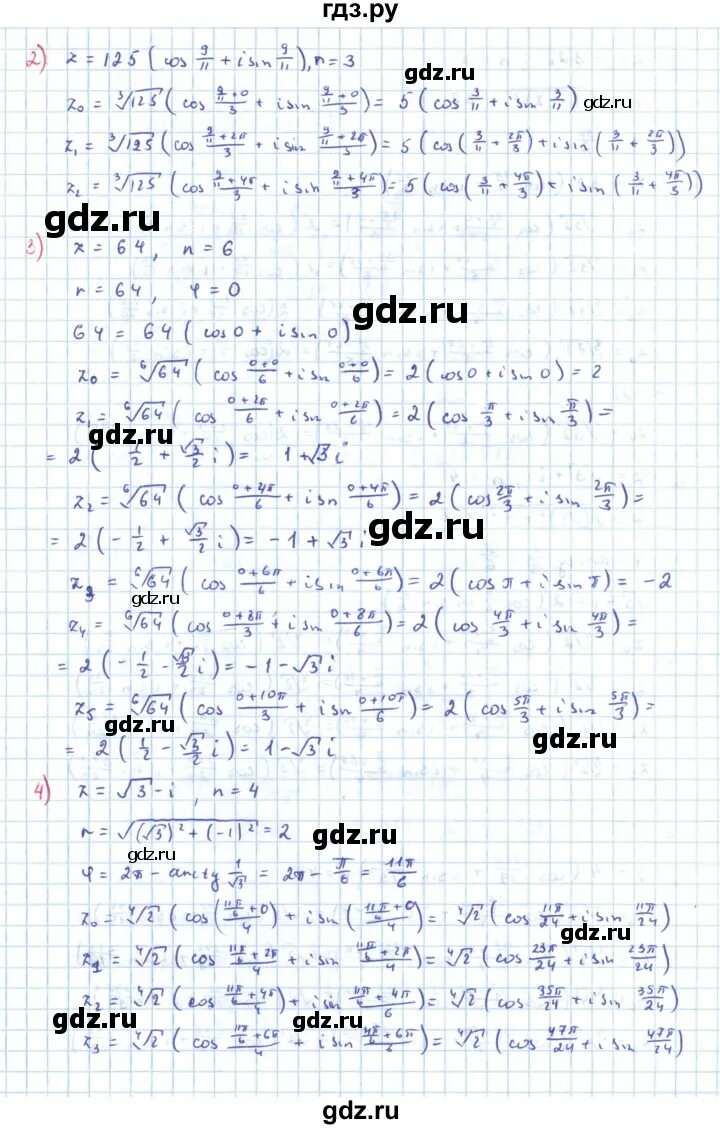 гдз.ру
2) z = 125 (cos 9/11 + i sin 9/11), n = 3
gdz.ru
z₀ = ∛125 (cos (9/11 + 0)/3 + i sin (9/11 + 0)/3) = 5 (cos 3/11 + i sin 3/11)
gdz.ru
z₁ = ∛125 (cos (9/11 + 2π)/3 + i sin (9/11 + 2π)/3) = 5 (cos (3/11 + 2π/3) + i sin (3/11 + 2π/3))
z₂ = ∛125 (cos (9/11 + 4π)/3 + i sin (9/11 + 4π)/3) = 5 (cos (3/11 + 4π/3) + i sin (3/11 + 4π/3))
gdz.ru
3) z = 64, n = 6
r = 64, φ = 0
gdz.ru
64 = 64 (cos 0 + i sin 0)
z₀ = ⁶√64 (cos (0+0)/6 + i sin (0+0)/6) = 2 (cos 0 + i sin 0) = 2
z₁ = ⁶√64 (cos (0+2π)/6 + i sin (0+2π)/6) = 2 (cos π/3 + i sin π/3) =
gdz.ru
= 2 (1/2 + √3/2 i) = 1 + √3 i
z₂ = ⁶√64 (cos (0+4π)/6 + i sin (0+4π)/6) = 2 (cos 2π/3 + i sin 2π/3) =
gdz.ru
= 2 (- 1/2 + √3/2 i) = - 1 + √3 i
z₃ = ⁶√64 (cos (0+6π)/6 + i sin (0+6π)/6) = 2 (cos π + i sin π) = - 2
gdz.ru
z₄ = ⁶√64 (cos (0+8π)/3 + i sin (0+8π)/6) = 2 (cos 4π/3 + i sin 4π/3) =
gdz.ru
= 2 (- 1/2 - √3/2 i) = - 1 - √3 i
z₅ = ⁶√64 (cos (0+10π)/3 + i sin (0+10π)/6) = 2 (cos 5π/3 + i sin 5π/3) =
gdz.ru
gdz.ru
= 2 (1/2 - √3/2 i) = 1 - √3 i
4) z = √3 - i, n = 4
r = √((√3)² + (-1)²) = 2
gdz.ru
gdz.ru
φ = 2π - arctg 1/√3 = 2π - π/6 = 11π/6
z₀ = ⁴√2 (cos ((11π/6 + 0)/4) + i sin ((11π/6 + 0)/4)) = ⁴√2 (cos 11π/24 + i sin 11π/24)
gdz.ru
gdz.ru
z₁ = ⁴√2 (cos (11π/6 + 2π)/4 + i sin (11π/6 + 2π)/4) = ⁴√2 (cos 23π/24 + i sin 23π/24)
z₂ = ⁴√2 (cos (11π/6 + 4π)/4) + i sin (11π/6 + 4π)/6) = ⁴√2 (cos 35π/24 + i sin 35π/24)
gdz.ru
gdz.ru
gdz.ru
z₃ = ⁴√2 (cos (11π/6 + 6π)/4 + i sin (11π/6 + 6π)/6) = ⁴√2 (cos 47π/24 + i sin 47π/24)
gdz.ru